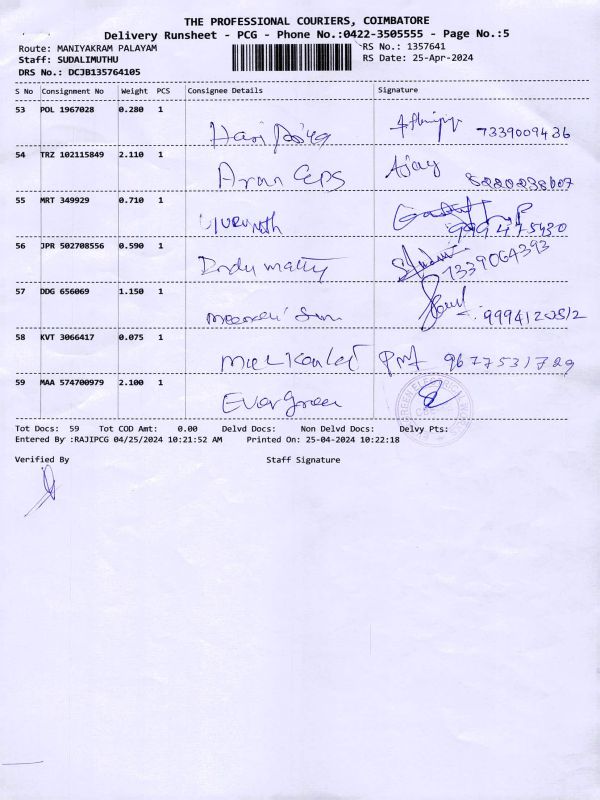 THE PROFESSIONAL COURIERS, COIMBATORE
Delivery Runsheet - PCG - Phone No.:0422-3505555 - Page No.:5
Route: MANIYAKRAM PALAYAM RS No.: 1357641
Staff: SUDALIMUTHU RS Date: 25-Apr-2024
DRS No.: DCJB135764105
S No Consignment No Weight PCS Consignee Details Signature
53 POL 1967028 0.280 1
Hari 7339009436
54 TRZ 102115849 2.110 1
Arun Ajay
55 MRT 349929 0.710 1
56 JPR 502708556 0.590 1
7339064393
57 DDG 656069 1.150 1
58 KVT 3066417 0.075 1
9677531729
59 MAA 574700979 2.100 1
Evergreen
Tot Docs: 59 Tot COD Amt: 0.00 Delvd Docs: Non Delvd Docs: Delvy Pts:
Entered By :RAJIPCG 04/25/2024 10:21:52 AM Printed On: 25-04-2024 10:22:18
Verified By Staff Signature